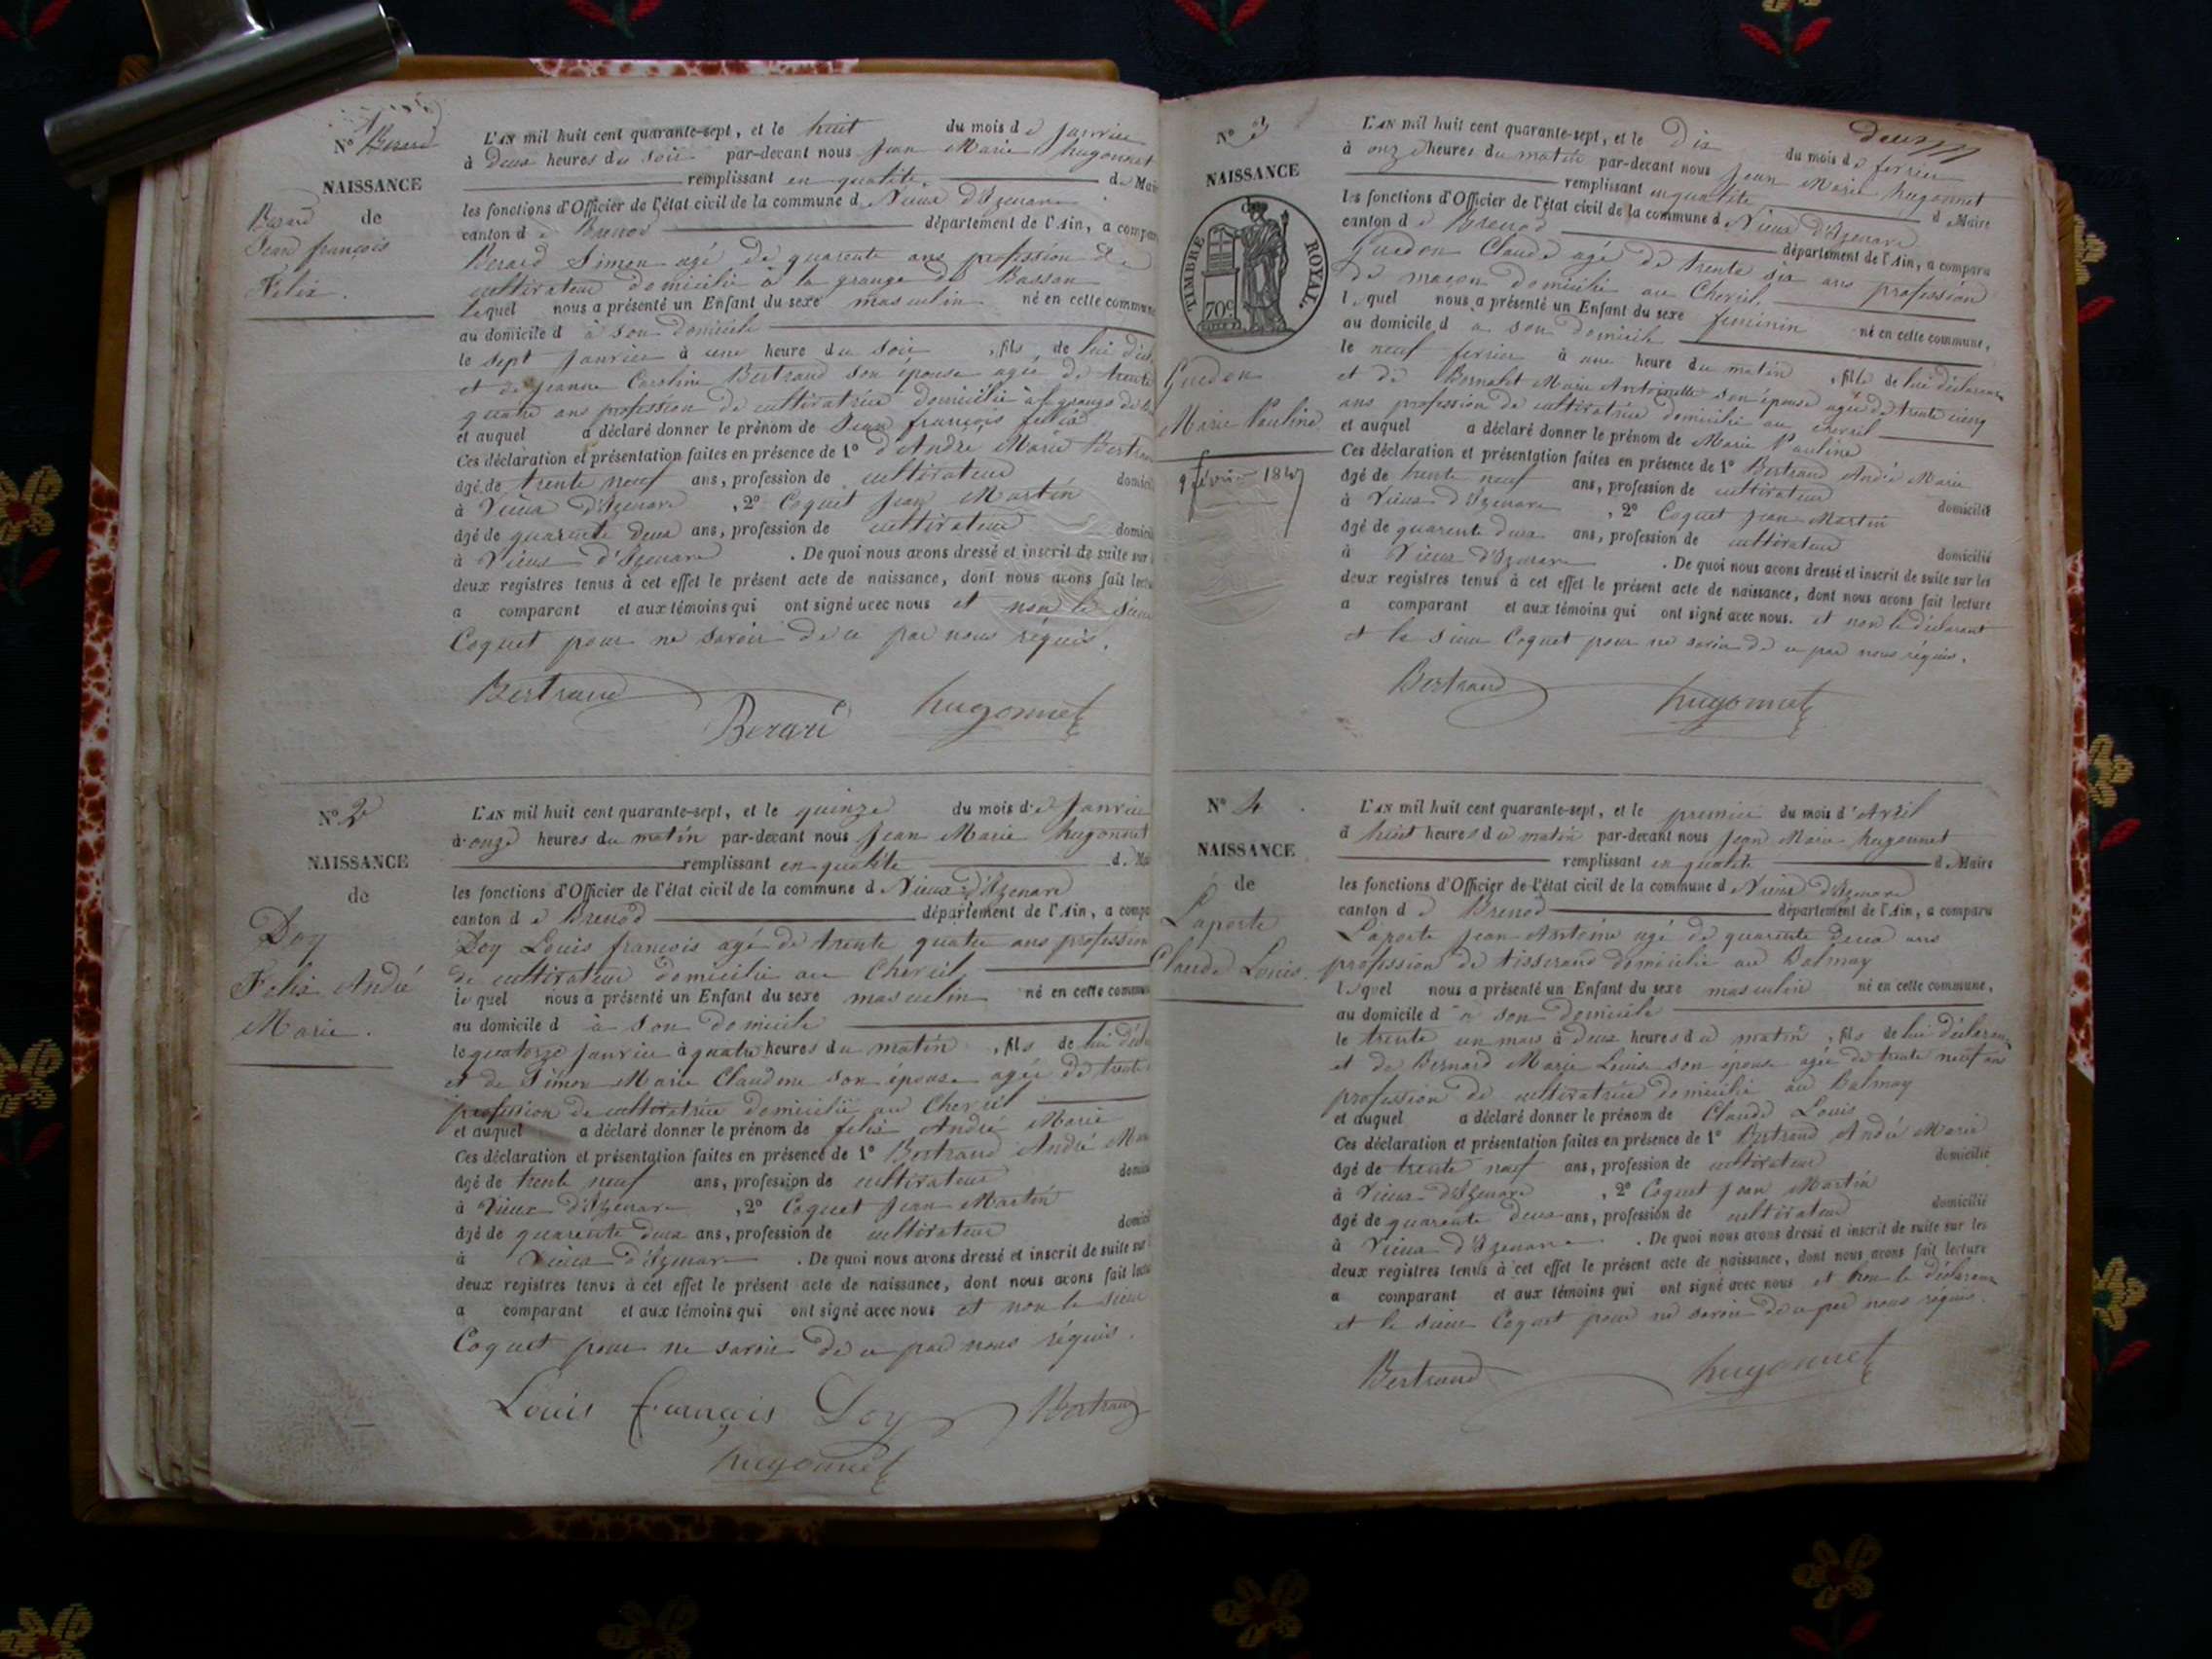 Nº Berard
NAISSANCE
de
Berard
Jean françois
Felix.
L'AN mil huit cent quarante-sept, et le huit du mois de Janvier
à Deux heures du soir par-devant nous Jean Marie hugonnet
remplissant en qualité de Mai
les fonctions d'Officier de l'état civil de la commune d Vieux d'Izenave
canton de Brenod département de l'Ain, a compar
Berard Simon agé de quarente ans profession de
cultivateur domicilié à la grange du Bassan
lequel nous a présenté un Enfant du sexe masculin né en cette commune
au domicile d à son domicile
le sept Janvier à une heure du soir, fils de lui décl
et de Jeanne Caroline Bertrand son épouse agée de trente
quatre ans profession de cultivatrice domicilié à la grange de
et auquel a déclaré donner le prénom de Jean françois felix
Ces déclaration et présentation faites en présence de 1º d'André Marie Bertran
âgé de trente neuf ans, profession de cultivateur domici
à Vieux d'Izenave, 2º Coquet Jean Martin
âgé de quarente deux ans, profession de cultivateur domici
à Vieux d'Izenave. De quoi nous avons dressé et inscrit de suite sur
deux registres tenus à cet effet le présent acte de naissance, dont nous avons fait lectu
a comparant et aux témoins qui ont signé avec nous et non le sieur
Coquet pour ne savoir de ce par nous réquis.
Bertrand
Berard hugonnet
Nº 2
NAISSANCE
de
Doy
Felix André
Marie.
L'AN mil huit cent quarante-sept, et le quinze du mois de Janvier
à onze heures du matin par-devant nous Jean Marie hugonnet
remplissant en qualité d. Mai
les fonctions d'Officier de l'état civil de la commune d Vieux d'Izenave
canton de Brenod département de l'Ain, a compa
Doy Louis françois agé de trente quatre ans profession
de cultivateur domicilié au Chevril
lequel nous a présenté un Enfant du sexe masculin né en cette commun
au domicile d à son domicile
le quatorze Janvier à quatre heures du matin, fils de lui décl
et de Simon Marie Claudine son épouse agée de trente
profession de cultivatrice domicilié au Chevril
et auquel a déclaré donner le prénom de felix André Marie
Ces déclaration et présentation faites en présence de 1º Bertrand André Mar
âgé de trente neuf ans, profession de cultivateur domici
à Vieux d'Izenave, 2º Coquet Jean Martin
âgé de quarente deux ans, profession de cultivateur domici
à Vieux d'Izenave. De quoi nous avons dressé et inscrit de suite sur
deux registres tenus à cet effet le présent acte de naissance, dont nous avons fait lectu
a comparant et aux témoins qui ont signé avec nous et non le sieur
Coquet pour ne savoir de ce par nous réquis.
Louis français Doy Bertrand
hugonnet
deux
Nº 3
NAISSANCE
TIMBRE ROYAL.
70c
Guedon
Marie Pauline
9 février 1847
L'AN mil huit cent quarante-sept, et le Dix du mois de fevrier
à onze heures du matin par-devant nous Jean Marie hugonnet
remplissant en qualité d Maire
les fonctions d'Officier de l'état civil de la commune d Vieux d'Izenave
canton de Brenod département de l'Ain, a comparu
Guedon Claude agé de trente six ans profession
de maçon domicilié au Chevril
lequel nous a présenté un Enfant du sexe feminin né en cette commune,
au domicile d à son domicile
le neuf fevrier à une heure du matin, fille de lui déclarant
et de Bornabet Marie Antoinette son épouse agée de trente cinq
ans profession de cultivatrice domicilié au chevril
et auquel a déclaré donner le prénom de Marie Pauline
Ces déclaration et présentation faites en présence de 1º Bertrand André Marie
âgé de trente neuf ans, profession de cultivateur
à Vieux d'Izenave, 2º Coquet Jean Martin domicilié
âgé de quarente deux ans, profession de cultivateur
à Vieux d'Izenave domicilié
. De quoi nous avons dressé et inscrit de suite sur les
deux registres tenus à cet effet le présent acte de naissance, dont nous avons fait lecture
a comparant et aux témoins qui ont signé avec nous. et non le déclarant
et le sieur Coquet pour ne savoir de ce par nous réquis.
Bertrand hugonnet
Nº 4
NAISSANCE
de
Laporte
Claude Louis.
L'AN mil huit cent quarante-sept, et le premier du mois d'Avril
à huit heures du matin par-devant nous Jean Marie hugonnet
remplissant en qualité d Maire
les fonctions d'Officier de l'état civil de la commune d Vieux d'Izenave
canton de Brenod département de l'Ain, a comparu
Laporte Jean Antoine agé de quarente deux ans
profession de tisserand domicilié au Balmay
lequel nous a présenté un Enfant du sexe masculin né en cette commune,
au domicile d à son domicile
le trente un mars à deux heures du matin, fils de lui déclarant
et de Bernard Marie Louise son épouse agée de trente neuf ans
profession de cultivatrice domicilié au Balmay
et auquel a déclaré donner le prénom de Claude Louis
Ces déclaration et présentation faites en présence de 1º Bertrand André Marie
âgé de trente neuf ans, profession de cultivateur domicilié
à Vieux d'Izenave, 2º Coquet Jean Martin
âgé de quarente deux ans, profession de cultivateur domicilié
à Vieux d'Izenave. De quoi nous avons dressé et inscrit de suite sur les
deux registres tenus à cet effet le présent acte de naissance, dont nous avons fait lecture
a comparant et aux témoins qui ont signé avec nous et non le déclarant
et le sieur Coquet pour ne savoir de ce par nous réquis.
Bertrand hugonnet